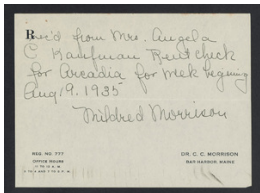 Rec'd from Mrs. Angela
C Kaufman Rent check
for Arcadia for week begining
Aug 19. 1935
Mildred Morrison
REG. NO. 777
OFFICE HOURS
DR. C. C. MORRISON
BAR HARBOR MAINE